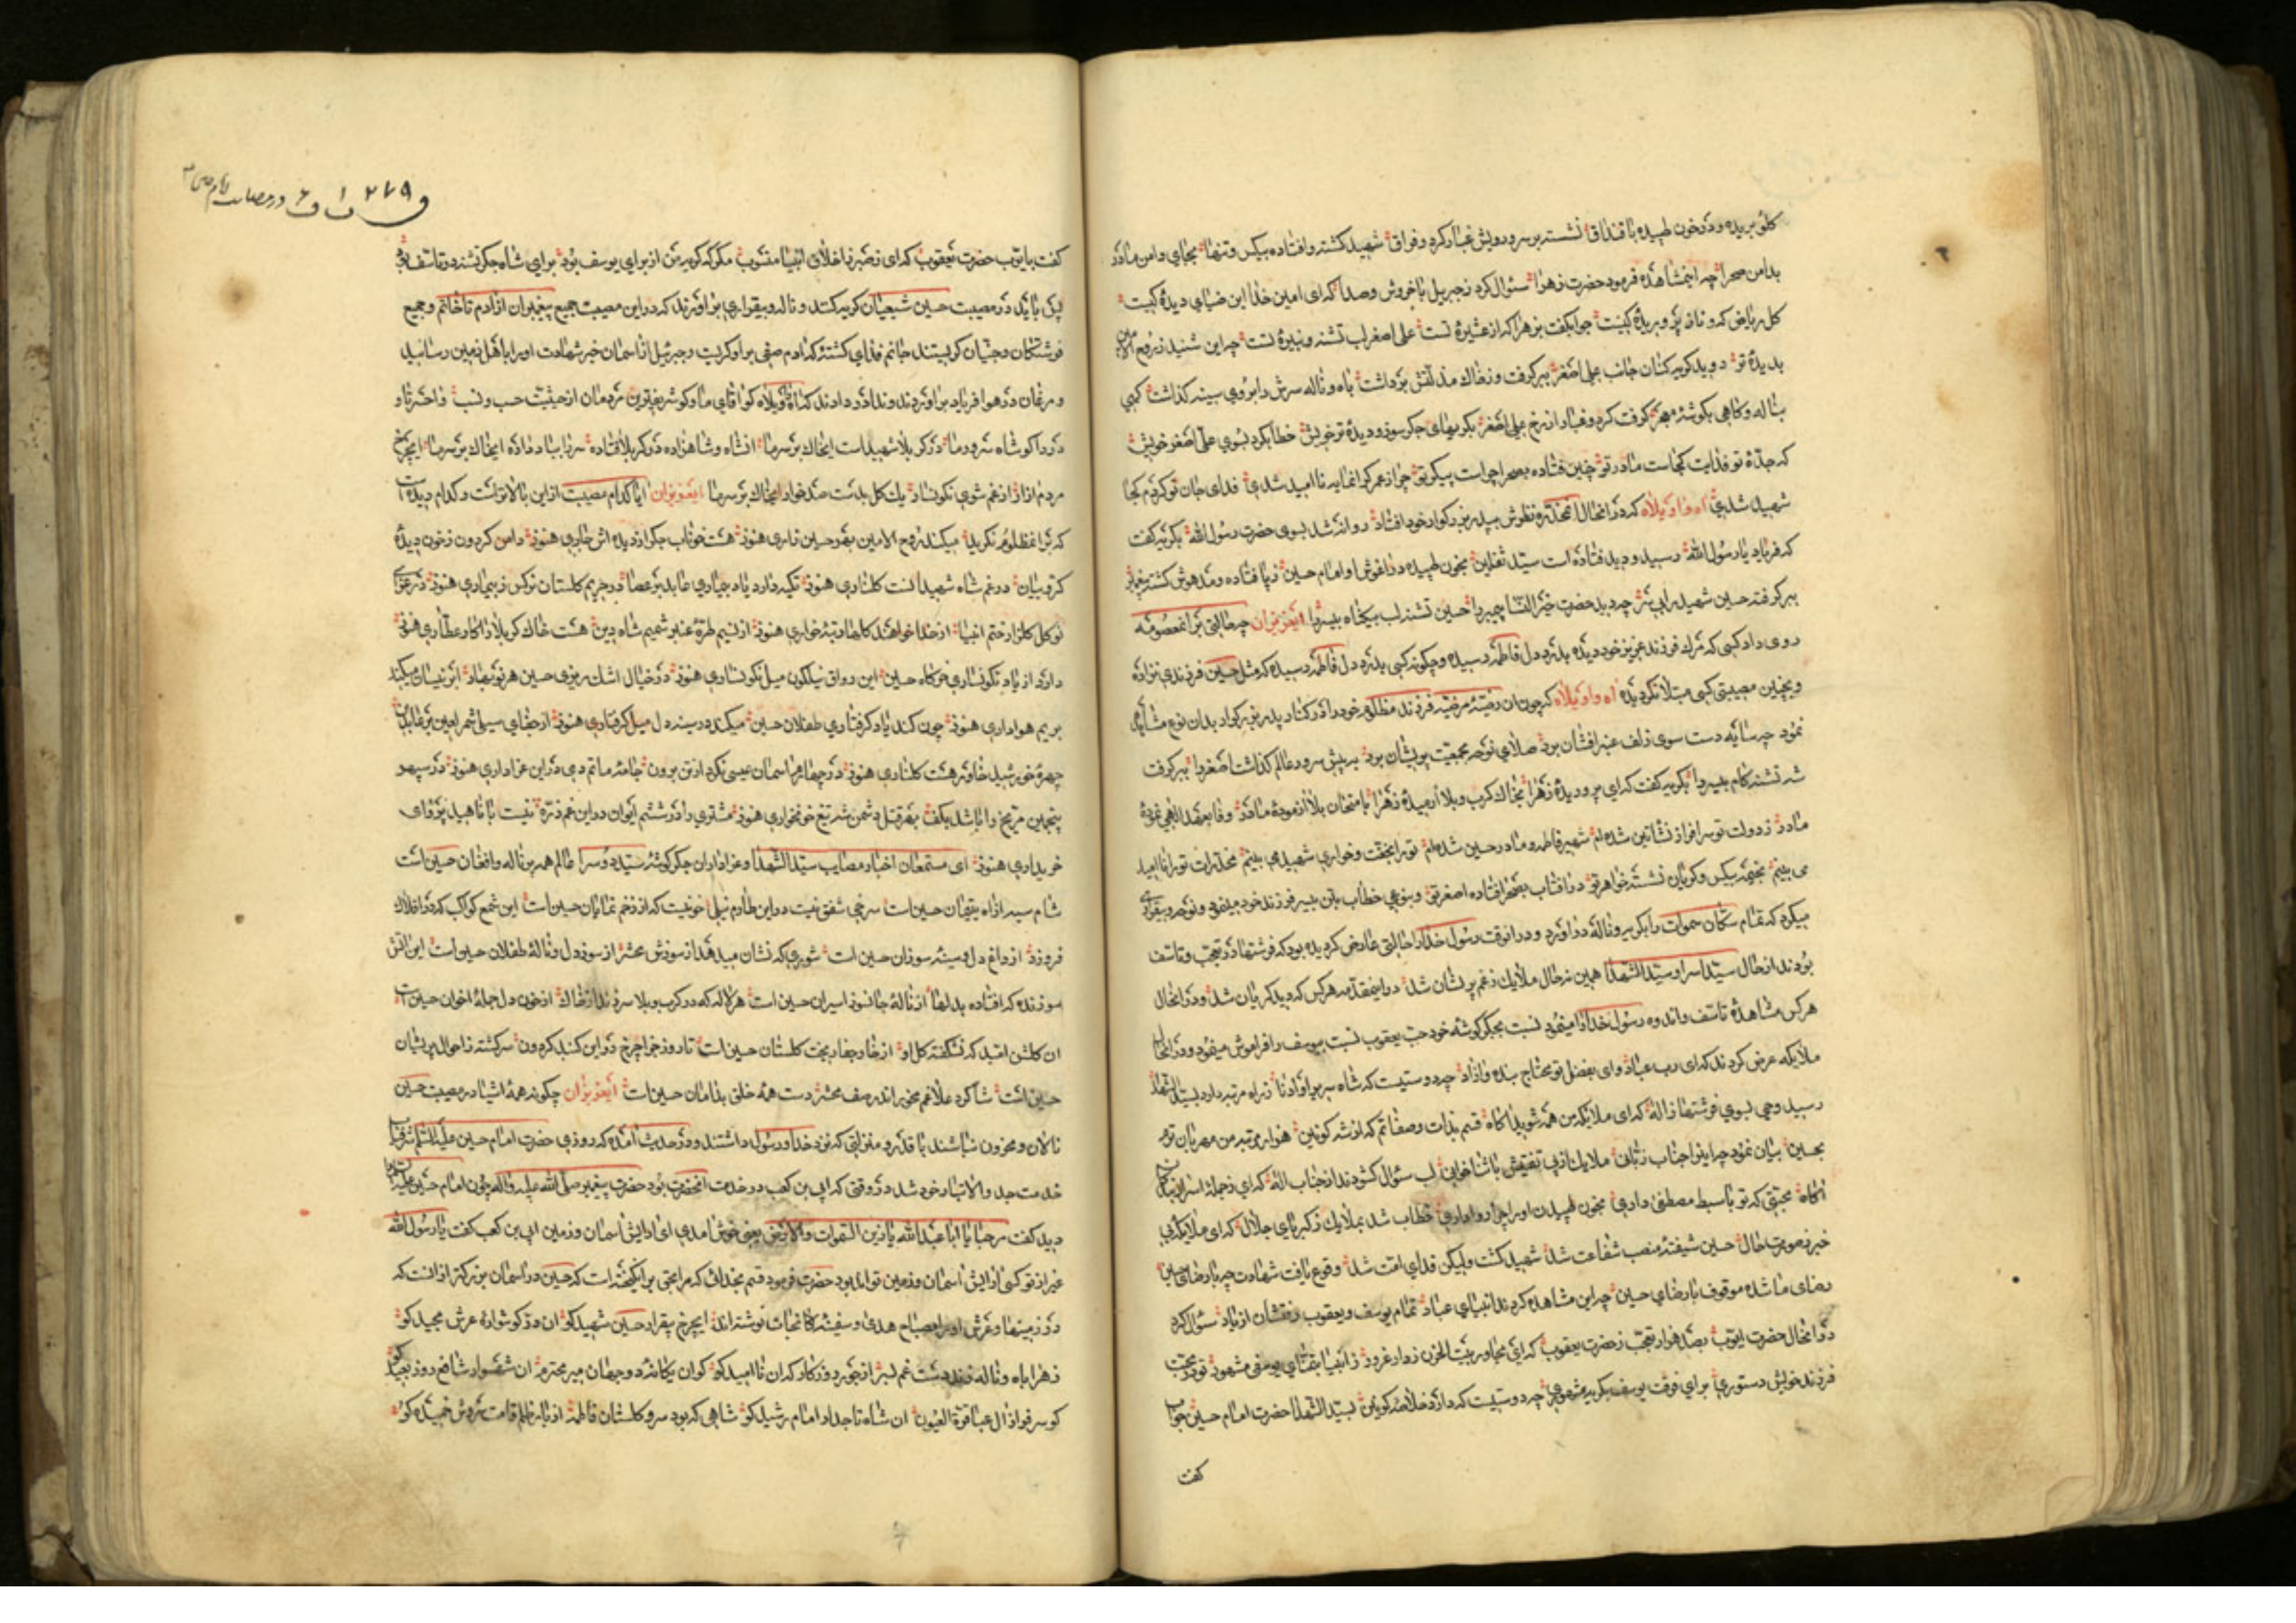 کلو بریده و در خون طپیده با قنداق نشسته بر سر و رویش غبار کرد و فراق شهید کشته و افتاده بیکس و تنها بجای دامن مادر
بدامن صحرا چه اینمشاهده فرمود حضرت زهرا سئوال کرد ز جبریل با خروش و صدا که ای امین خدا این ضیای دیدهٔ کیست
کل ریاض که و نازپرور بدهٔ کیست جوابکفت بزهرا که از عشیرهٔ تست علی اصغر لب تشنه و نبیرهٔ تست چه این شنید ز روح الامین
بدیدهٔ تر دوید کریه کنان جانب علی اصغر ببر کرفت و ز خاک مذلتش برداشت باه و ناله سرش را بروی سینه کذاشت کهی
بناله و کاهی بکوشهٔ معجر کرفت کرد و غبار از رخ علی اصغر بکریهای جکر سوز و دیدهٔ تر خویش خطاب کرد بسوی علی اصغر خویش
که جدهٔ تو فدایت کجاست مادر تو چنین فتاده بصحرا چراست پیکر تو چرا ز عمر کرانمایه ناامید شدی فدای جان تو کردم کجا
شهید شدی اه واویلاه که در انحال انمخدره نظرش بپدر بزرکوار خود افتاد روانه شد بسوی حضرت رسول الله بکریه کفت
که فریاد یا رسول الله رسید و دید فتاده است سید ثقلین بخون طپیده در اغوش او امام حسین ز پا فتاده و مدهوش کشته پیغمبر
ببر کرفته حسین شهید را بی سر چه دید حضرت خیر النسا پیمبر را حسین تشنه لب بیکناه بیسر را ایعزیزان چه حالتی بر انمعصومه
روی داد کسی که مرک فرزند عزیز خود دیده بدرد دل فاطمه رسیده و چکونه کسی بدرد دل فاطمه رسیده که مثل حسین فرزندی نزاده
و بچنین مصیبتی کسی مبتلا نکردیده اه واویلاه که چون ان رضیهٔ مرضیه فرزند مظلوم خود را در کنار پدر بزرکوار بدان نوع مشاهده
نمود چه سایه دست سوی زلف عنبر افشان برد صلای نوحه بجمعیت پریشان برد به پیش سرور عالم کذاشت اصغر را ببر کرفت
شه تشنه کام بیسر را بکریه کفت که ای پروریدهٔ زهرا بخاک کرب و بلا ارمیدهٔ زهرا بامتحان بلا ازمودهٔ مادر وفا بعهد الهی نمودهٔ
مادر ز دولت تو سرافراز نشاتین شده ام شهیر فاطمه و مادر حسین شده ام ترا بخفت و خواری شهید می بینم مخدرات ترا ناامید
می بینم بخیمه بیکس و کریان نشسته خواهر تو در افتاب بصحرا فتاده اصغر تو و بنوعی خطاب بتن بیسر فرزند خود مینمود و نوحه و بیقراری
میکرد که تمام سکان سموات را بکریه و ناله در اورد و در انوقت رسول خدا را حالتی عارض کردیده بود که فرشتها در تعجب و تاسف
بودند از حال سید اسرا و سید الشهدا همین نه حال ملایک ز غم پریشان شد در اینمقدمه هر کس که دید کریان شد و در انحال
هر کس مشاهدهٔ تاسف و اندوه رسول خدا را مینمود نسبت بجکر کوشه خود حب یعقوب نسبت بیوسف را فراموش مینمود و در انحال
ملایکه عرض کردند که ای رب عباد وای بفضل تو محتاج بنده و ازاد چه دوستیست که شاه سریر اوادنا ز راه مرتبه دارد بسید الشهدا
رسید وحی بسوی فرشتها ز اله که ای ملایکه من همه شوید اکاه قسم بذات و صفاتم که از شه کونین هزار مرتبه من مهربان ترم
بحسین بیان نمود چه این را جناب ربانی ملایک از پی تفتیش با ثنا خوانی لب سئوال کشودند از جناب اله که ای ز جملهٔ اسرار بندکان
اکاه محبتی که تو با سبط مصطفی داری بخون طپیدن او را چرا روا داری خطاب شد بملایک ز کبریای جلال که ای ملایکه بی
خبر ز صورت حال حسین شیفتهٔ منصب شفاعت شد شهید کشت ولیکن فدای امت شد وقوع یافت شهادت چه با رضای حسین
رضای ما شده موقوف با رضای حسین چه این مشاهده کردند انبیای عباد تمام یوسف و یعقوب رفتشان از یاد سئوال کرد
در انحال حضرت ایوب بصد هزار تعجب ز حضرت یعقوب که ای مجاور بیت الحزن ز وادی غرور ز انبیا بقتای یوسفی مشهور تو در محبت
فرزند خویش دستوری برای فرقت یوسف بکریه مشهوری چه دوستیست که دارد خلاصهٔ کونین بسید الشهدا حضرت امام حسین جواب
کفت
۲۷۹
کفت بایوب حضرت یعقوب که ای بصبر و اخلاق انبیا منسوب مکو که کریه من از برای یوسف بود برای شاه جکر تشنه در تاسف بود
پس باید در مصیبت حسین شیعیان کریه کنند و ناله و بیقراری براورند که در این مصیبت جمیع پیغمبران از ادم تا خاتم و جمیع
فرشتکان و جنیان کریستند جانم فدای کشتهٔ که ادم صفی بر او کریست و جبرئیل از اسمان خبر شهادت او را باهل زمین رسانید
و مرغان در هوا فریاد براوردند و ندا در دادند که اه واویلاه کو اقای ما و کو شریفترین مردمان از حیثیت حسب و نسب واحسرتا و
دردا کو شاه سرور ما در کربلا شهید است ایخاک بر سر ما انشاه و شاهزاده در کربلا فتاده سر را بباد داده ایخاک بر سر ما ایچرخ
مردم ازار از غم شوی نکونسار یک کل بدست صد خار ایخاک بر سر ما ایعزیزان ایا کدام مصیبت از این بالاتر است و کدام دیده است
که بر انمظلوم نکرید میکند روح الامین بهر حسین زاری هنوز هست خوناب جکر از دیده اش جاری هنوز دامن کردون ز خون دیدهٔ
کروبیان در غم شاه شهیدانست کلناری هنوز تکیه دارد یاد بیماری عابد بر عصا در حریم کلستان نرکس ز بیماری هنوز در عزای
نوکل کلزار ختم انبیا از خدا خواهند کلها رتبهٔ خواری هنوز از نسیم طرهٔ عنبر شمیم شاه دین هست خاک کربلا را کار عطاری هنوز
دارد از یاد نکونساری خرکاه حسین این رواق نیلکون میل نکونساری هنوز در خیال اشک ریزی حسین هر نوبهار ابر نیسان میکند
بریم هواداری هنوز چون کند یاد کرفتاری طفلان حسین میکند در سینه دل میل کرفتاری هنوز از جفای سیلی شمر لعین بر عابدین
چهرهٔ خورشید خاور هست کلناری هنوز در چهارم اسمان عیسی نکرد از تن برون جامهٔ ماتم دمی در این عزاداری هنوز در سپهر
پنجمین مریخ را باشد بکف بهر قتل دشمن شه تیغ خونخواری هنوز مشتری را در ششم ایوان در این غم ذرهٔ نیست با ناهید پروای
خریداری هنوز ای مستمعان اخبار مصایب سید الشهدا و عزاداران جکر کوشهٔ سید دوسرا عالم همه پر ناله و افغان حسین است
شام سیه از اه یتیمان حسین است سرخی شفق نیست در این طارم نیلی خونیست که از زخم نمایان حسین است این شمع کواکب که در افلاک
فروزد از داغ دل و سینهٔ سوزان حسین است شوری که نشان میدهد از سوزش محشر از سوز دل و نالهٔ طفلان حسین است این اتش
سوزنده که افتاده بدلها از نالهٔ جانسوز اسیران حسین است هر لاله که در کرب و بلا سر زند از خاک از خون دل جملهٔ اخوان حسین است
ان کلشن امید که نشکفته کل او از خار جفا ریخت کلستان حسین است تا روز جزا چرخ در این کنبد کردون سرکشته ز احوال پریشان
حسین است شاکرد علا غم مخور اندر صف محشر دست همه خلق بدامان حسین است ایعزیزان چکونه همهٔ اشیا در مصیبت حسین
نالان و محزون نباشند با قدر و منزلتی که نزد خدا و رسول داشتند و در حدیث امده که روزی حضرت امام حسین علیه السلم شرفیاب
خدمت جد والاتبار خود شد در وقتی که ابی بن کعب در خدمت انحضرت بود حضرت پیغمبر صلی الله علیه واله چون امام حسین علیه السلام را
دید کفت مرحبا یا ابا عبد الله یا زین السموات والارض یعنی خوش امدی ای ارایش اسمان و زمین ابی بن کعب کفت یا رسول الله
غیر از تو کسی ارایش اسمان و زمین تواند بود حضرت فرمود قسم بخدائی که مرا بحق برانکیخته است که حسین در اسمان بزرکتر از انست که
در زمینها و عرش او را مصباح هدی و سفینهٔ نجات نوشته اند ایچرخ بیقرار حسین شهید کو ان در کوشوارهٔ عرش مجید کو
زهرا باه و ناله زند دست غم بسر از جور روزکار که ان ناامید کو کو ان یکانهٔ دو جهان میر محترم ان شهسوار شافع روز بعید کو
کو سرفراز ال عبا قرة العیون ان شاه تاجدار امام رشید کو شاهی که بود سرو کلستان فاطمه از بار ظلم قامت سروش خمیده کو